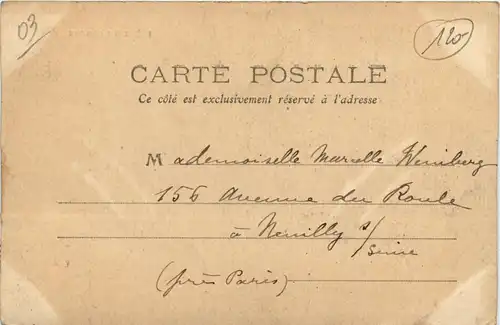 03
120-
CARTE POSTALE
Ce côté est exclusivement réservé à l'adresse
Mademoiselle Marcelle Weinberg
156 Avenue du Roule
à Neuilly s/
Seine
(près Paris)